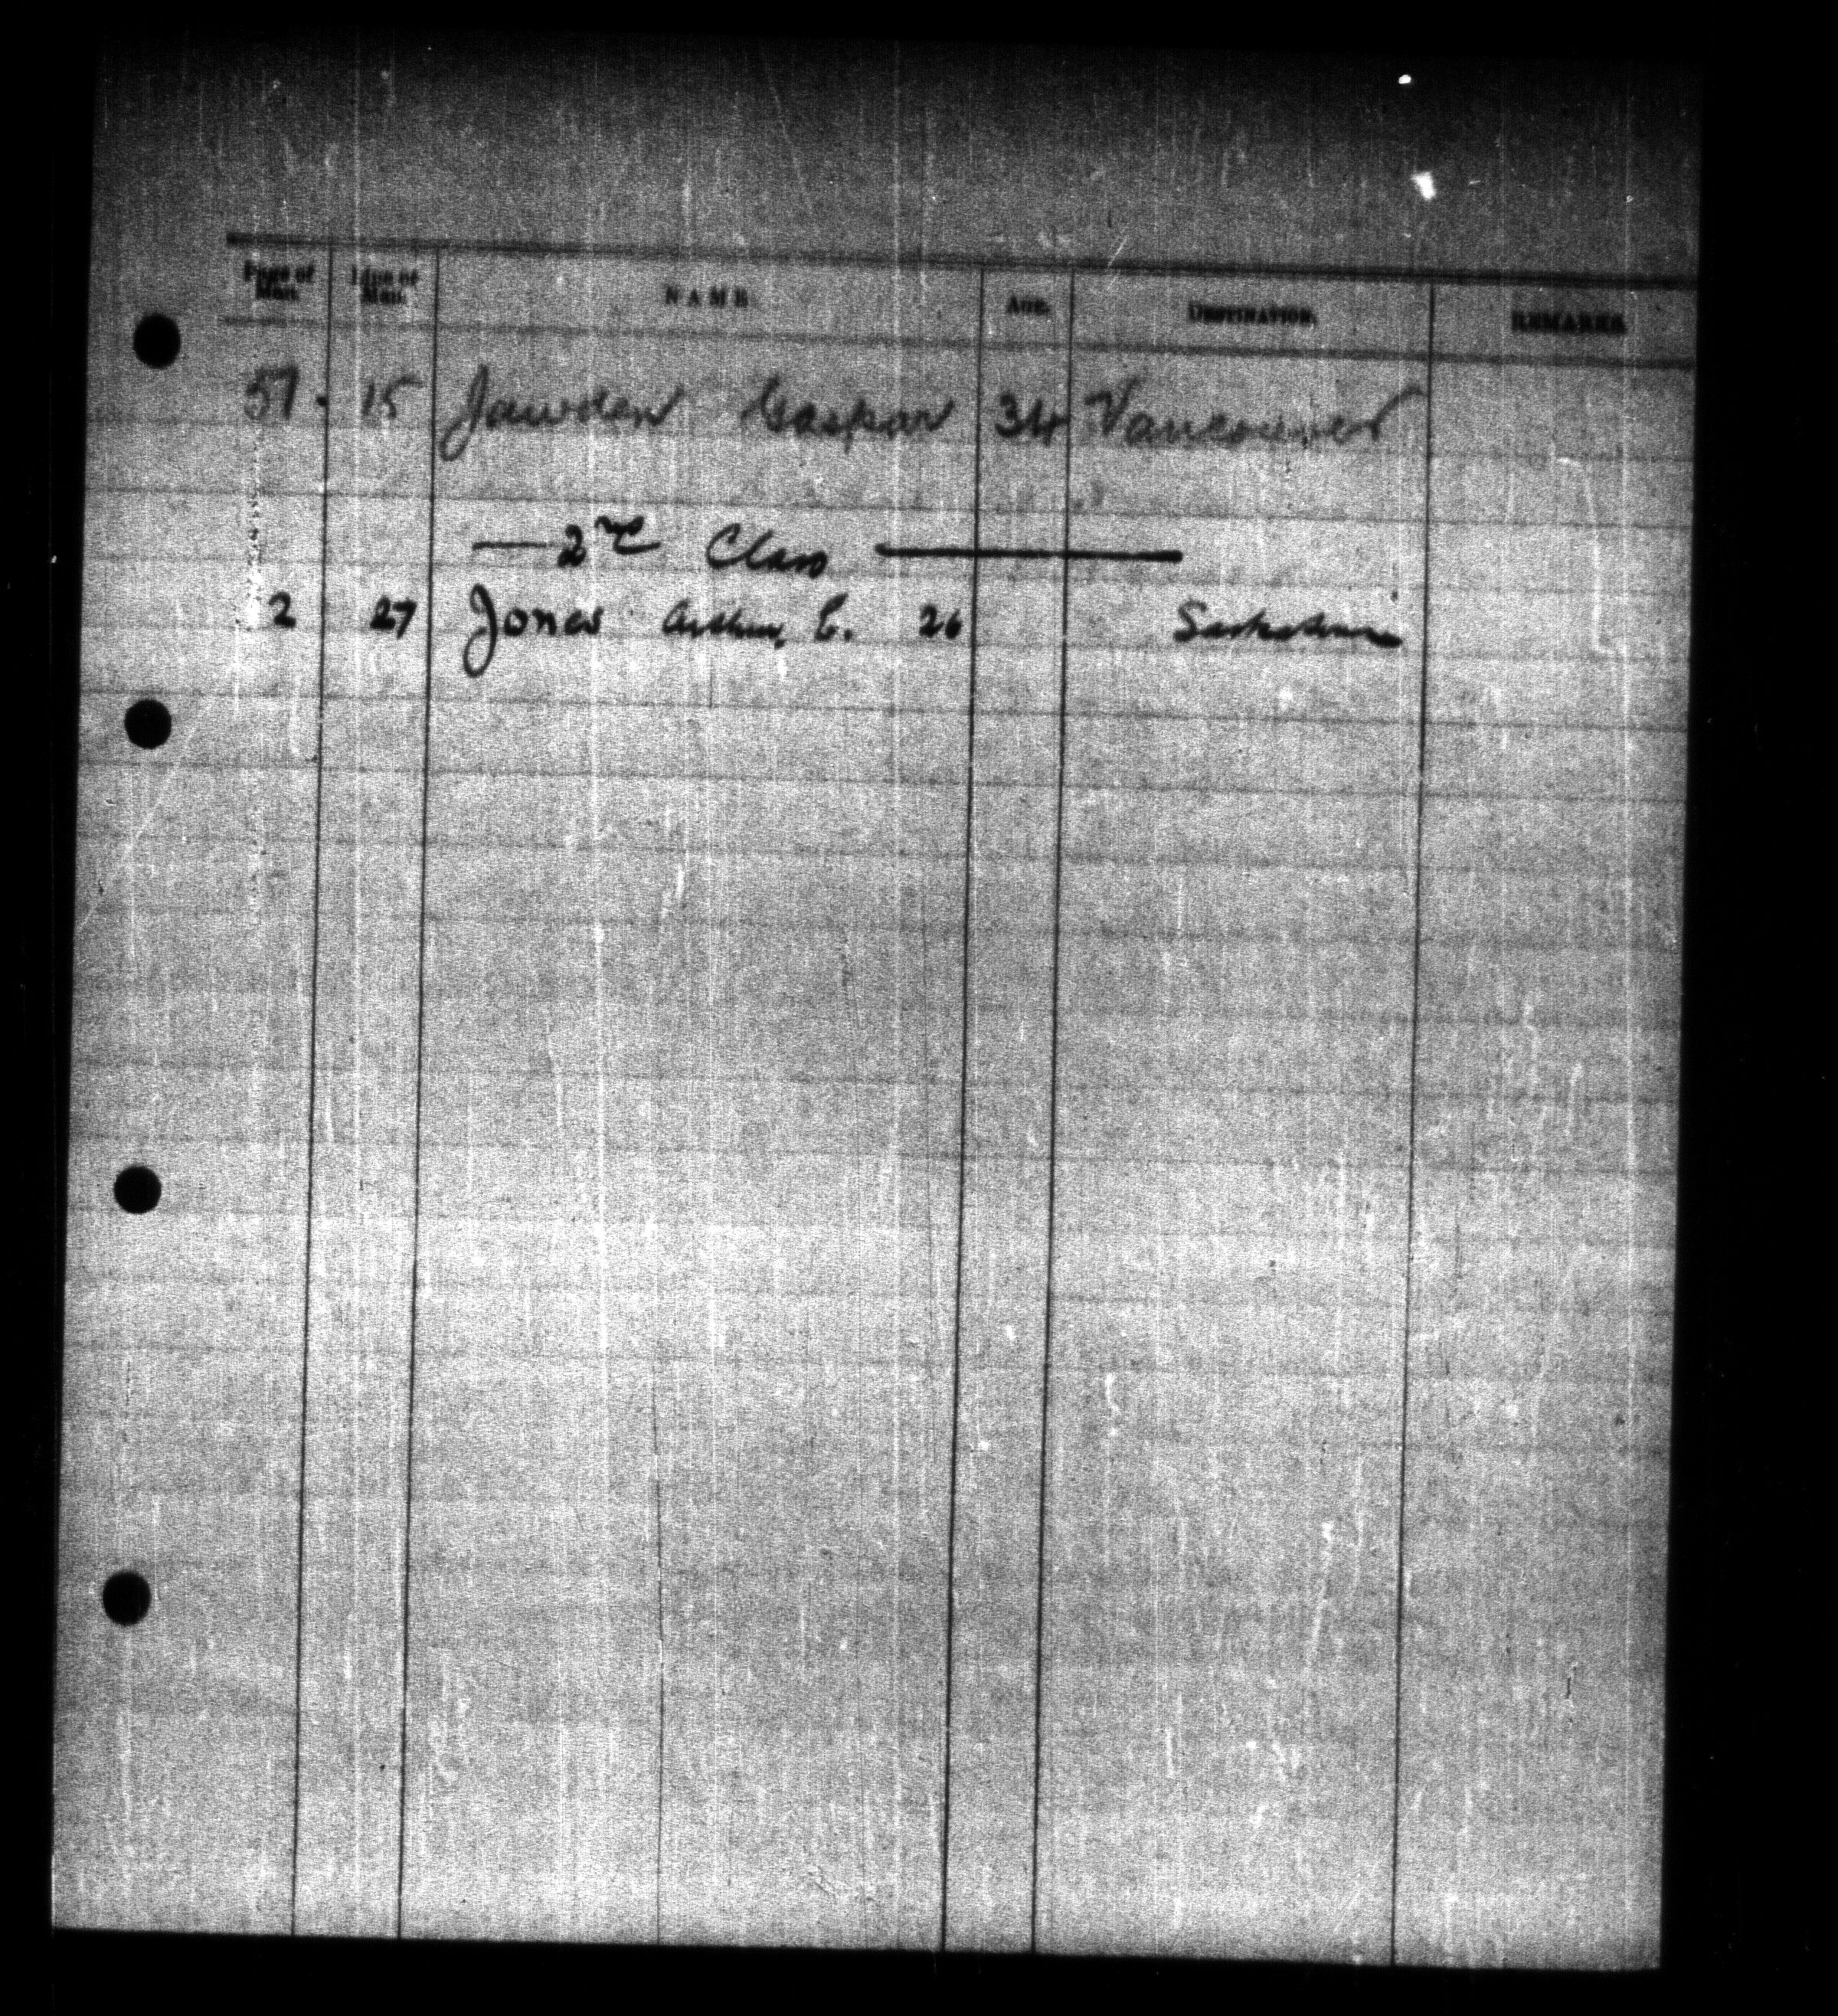 Page of Man. Line of Man. NAME AGE. DESTINATION. REMARKS
57. 15 Jawden Gaspar 34 Vancouver
— 2nd Class —
2 27 Jones Arthur E. 26 Saskatoon